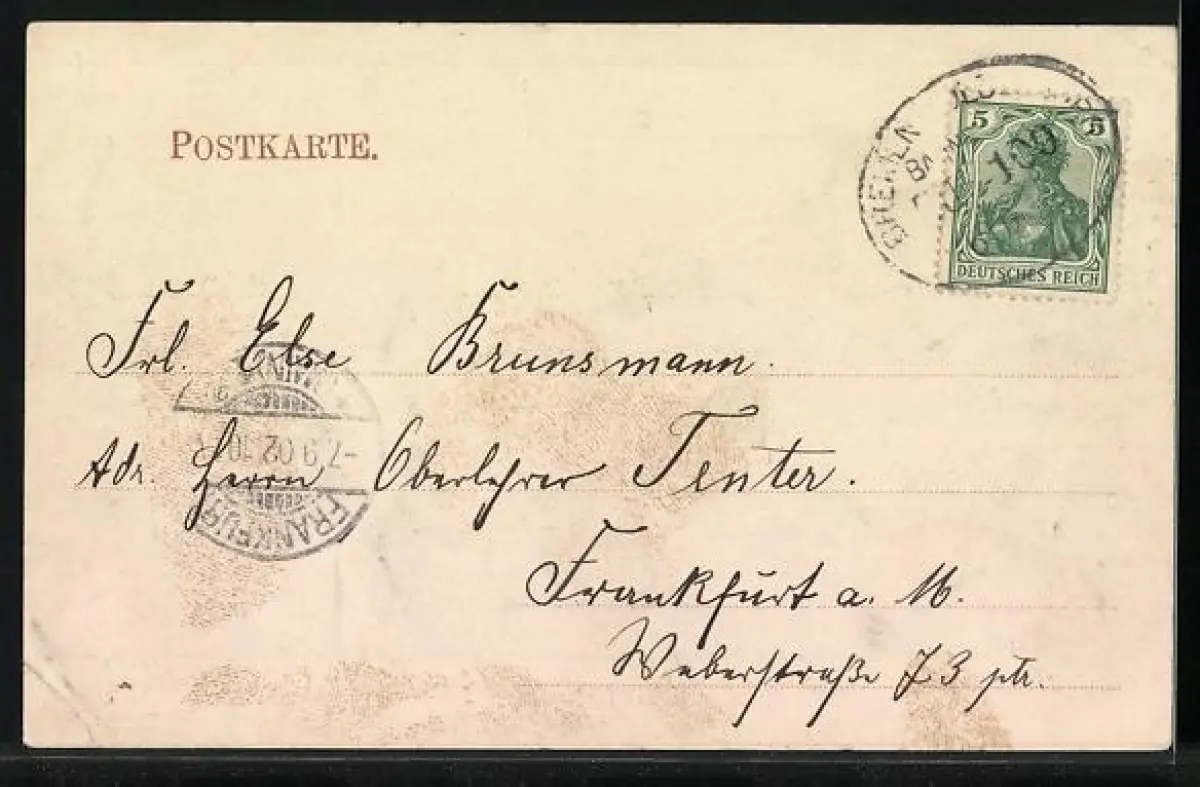 POSTKARTE.
BREMEN
5 5
100
DEUTSCHES REICH
Frl. Else Brunsmann.
MAIN
Adr. Herrn Oberlehrer Tenter.
-7.9.02.10
FRANKFURT
Frankfurt a. M.
Weberstraße 73 ptr.